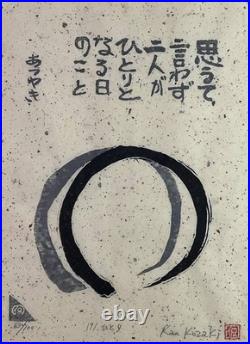 思うて
言わず
二人が
ひとりと
なる日
のこと
あつやき
171. ひとり
Kan Kozaki